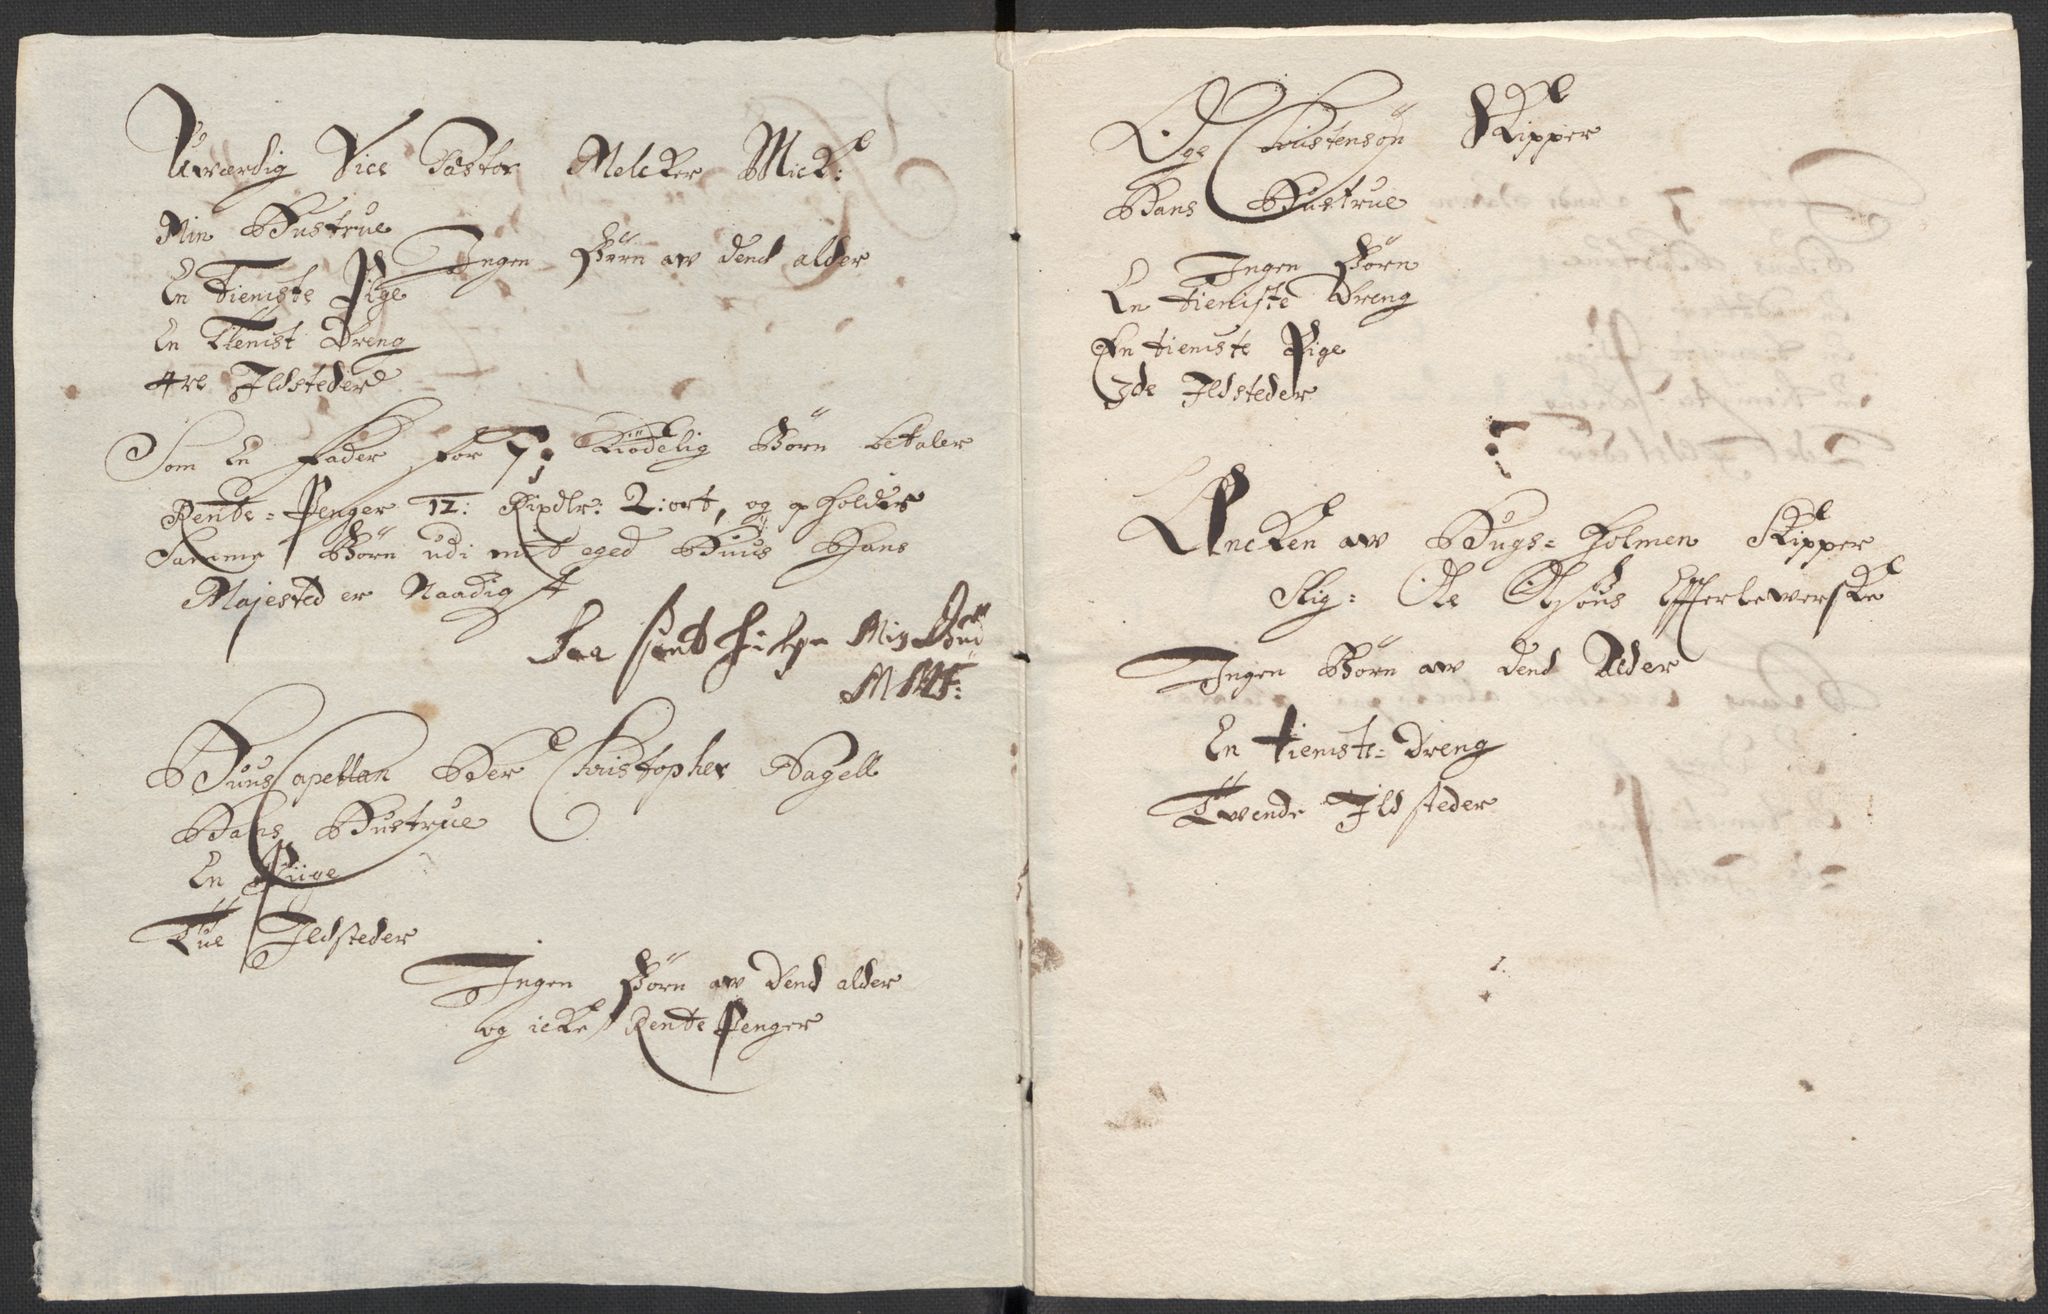 Uværdig Vice Pastor Melcker Mick:
Min Hustrue
Ingen Börn aw dend alder
En Tieniste Pige
En Tienist Dreng
4re Ildsteder
Som En Fader for 7: Kiödelig Börn betaler
Rente-Penger 12: Rixdlr: 2: ort, og opholder
Samme Börn udi mit eged Huus Hans
Majested er Naadigst
Saa sant hielpe Mig Gud
Huus Capellan Her Christopher Nagell
Hans Hustrue
En Piige
Tue Ildsteder
Ingen Börn aw Dend alder
og icke Rente Penger
Christensön Skipper
Hans Hustrue
Ingen Börn
En tieniste Dreng
En tieniste Pige
3de Ildsteder
Encken aw Bugs-Holmen Skipper
Slig: Ole Efterlewerske
Ingen Börn aw Dend Alder
En tieniste-Dreng
Twende Ildsteder